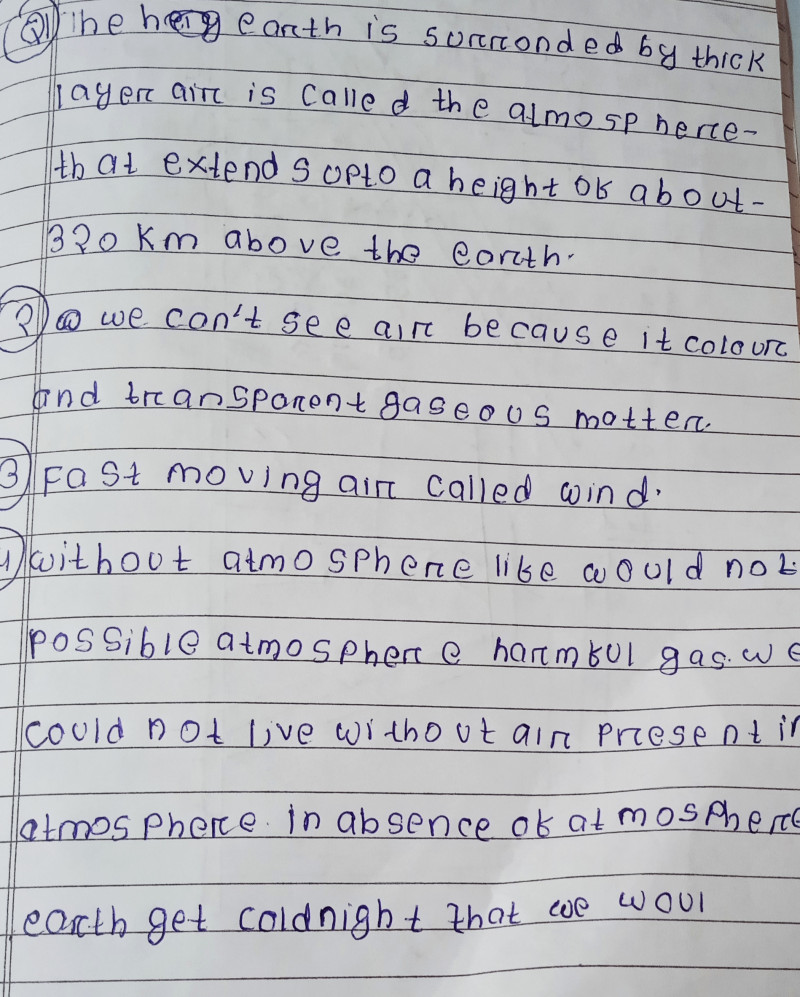 Q1) The earth is surronded by thick
layer air is called the atmosphere-
that extends upto a height of about-
320 Km above the earth.
2) we can't see air because it colour
and transparent gaseous matter.
3) Fast moving air called wind.
4) without atmosphere life would not
possible atmosphere harmful gas. we
could not live without air present in
atmosphere. in absence of atmosphere
earth get coldnight that we woul